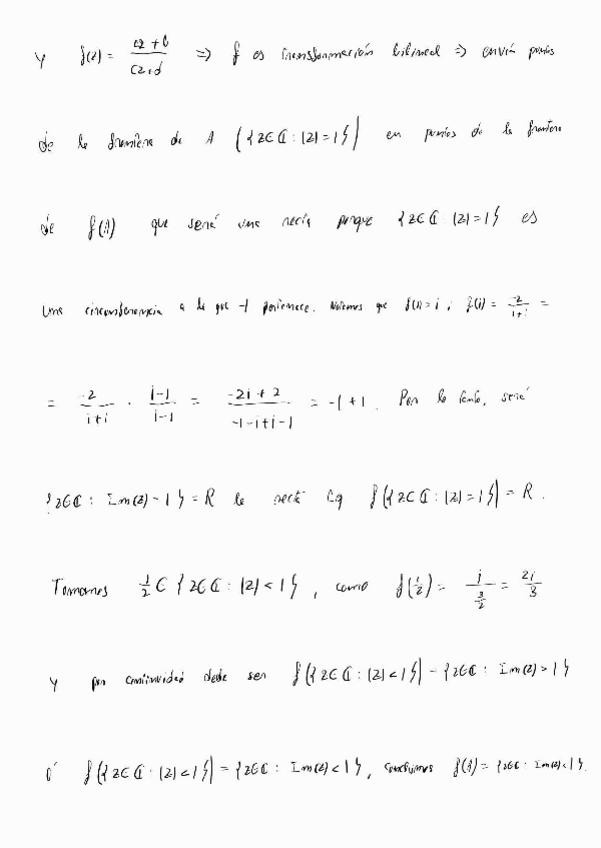 y f(z) = az+b / cz+d => f es transformación bilineal => envía puntos
de la frontera de A ({z∈ℂ : |z|=1}) en puntos de la frontera
de f(A) que será una recta porque {z∈ℂ : |z|=1} es
una circunferencia a la que -1 pertenece. Notemos que f(1)=i ; f(i) = -2/(1+i) =
= -2/(i+i) · (i-1)/(i-1) = (-2i+2)/(-1-i+i-1) = -1+i. Por lo tanto, será
{z∈ℂ : Im(z)=1} = R la recta tq f({z∈ℂ : |z|=1}) = R.
Tomamos 1/2 ∈ {z∈ℂ : |z|<1}, como f(1/2) = i/(3/2) = 2i/3
y por continuidad debe ser f({z∈ℂ : |z|<1}) = {z∈ℂ : Im(z)>1}
ó f({z∈ℂ : |z|<1}) = {z∈ℂ : Im(z)<1}, concluimos f(A) = {z∈ℂ : Im(z)<1}.